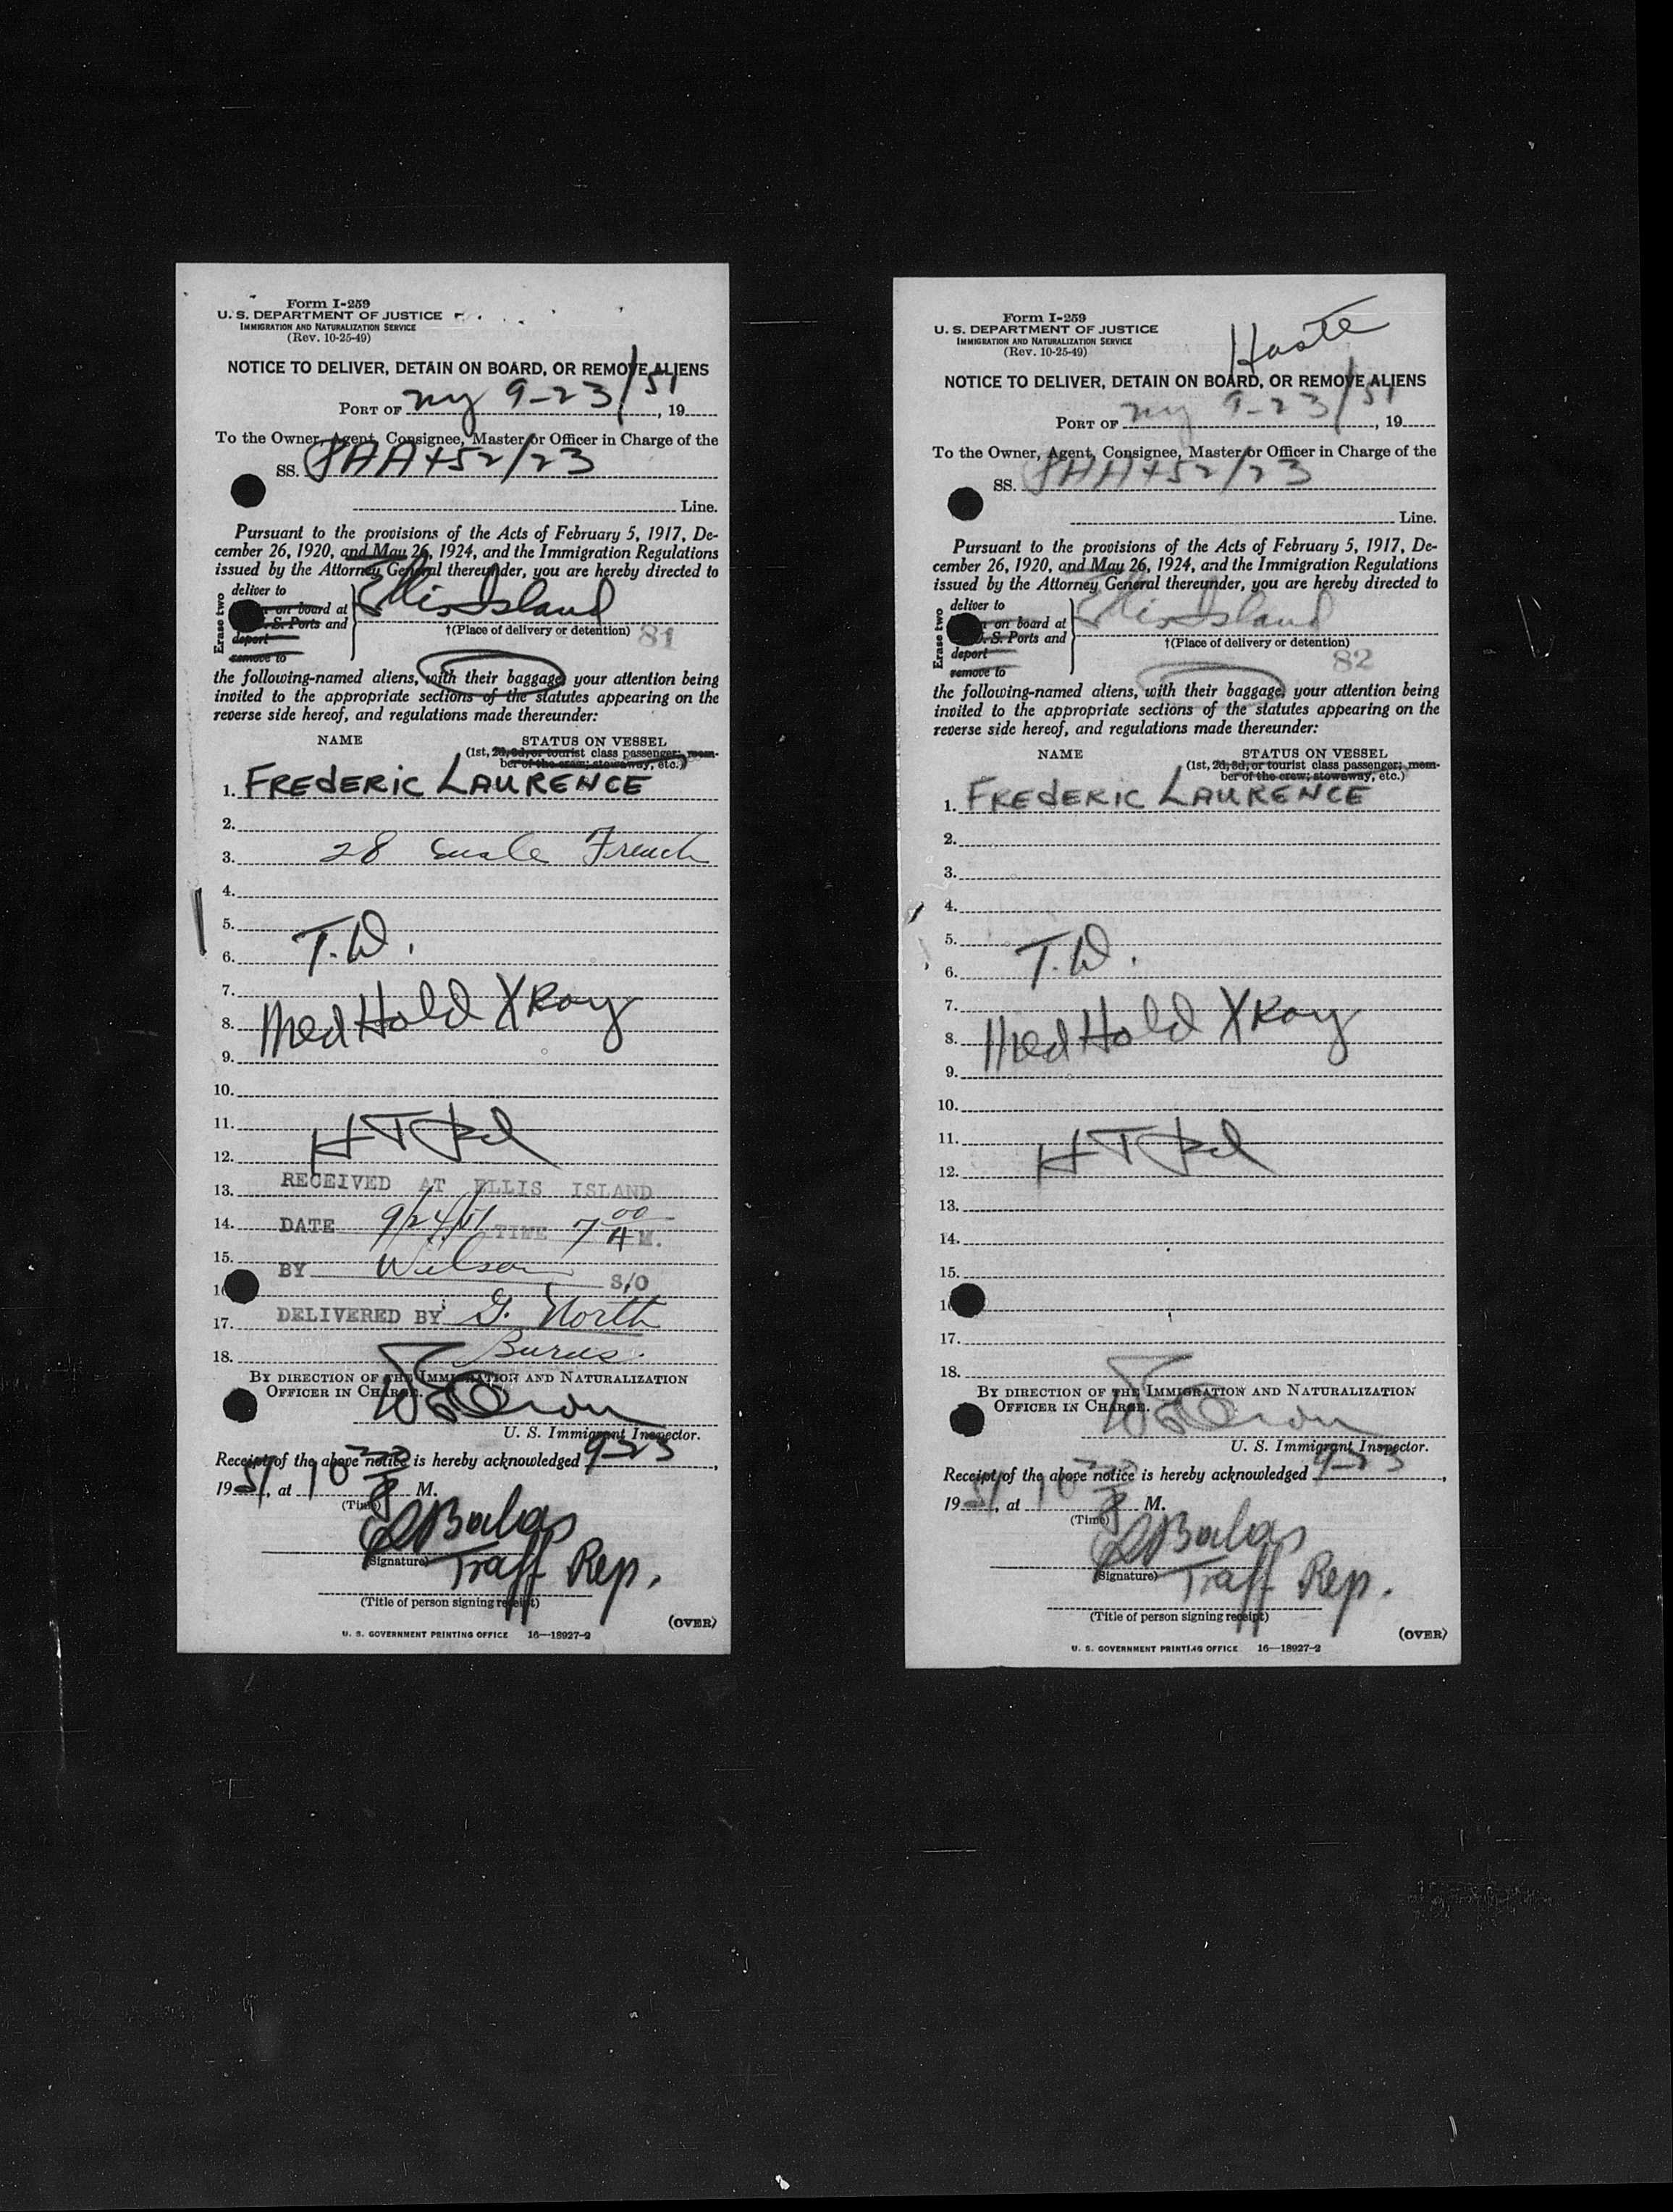 Form I-259
U. S. DEPARTMENT OF JUSTICE
IMMIGRATION AND NATURALIZATION SERVICE
(Rev. 10-25-49)
NOTICE TO DELIVER, DETAIN ON BOARD, OR REMOVE ALIENS
PORT OF ny 9-23/51, 19
To the Owner, Agent, Consignee, Master or Officer in Charge of the
SS. PAA +52/23
Line.
Pursuant to the provisions of the Acts of February 5, 1917, De-
cember 26, 1920, and May 26, 1924, and the Immigration Regulations
issued by the Attorney General thereunder, you are hereby directed to
Erase two
deliver to
on board at
S. Ports and
deport
remove to
Ellis Island
†(Place of delivery or detention) 81
the following-named aliens, with their baggage, your attention being
invited to the appropriate sections of the statutes appearing on the
reverse side hereof, and regulations made thereunder:
NAME STATUS ON VESSEL
(1st, 2d, 3d, or tourist class passenger; mem-
ber of the crew; stowaway, etc.)
1. FREDERIC LAURENCE
2.
3. 28 French
4.
5.
6. T.D.
7.
8. Med Hold XRay
9.
10.
11.
12.
13. RECEIVED AT ELLIS ISLAND
14. DATE 9/24/51 TIME 7 00 A M.
15.
BY Wilson S/O
16
17. DELIVERED BY G. North
18. Burns.
BY DIRECTION OF THE IMMIGRATION AND NATURALIZATION
OFFICER IN CHARGE.
U. S. Immigrant Inspector.
Receipt of the above notice is hereby acknowledged 9-23,
1951, at 10 30 P M.
(Time)
Balas
(Signature)
Traff Rep.
(Title of person signing receipt)
(OVER)
U. S. GOVERNMENT PRINTING OFFICE 16—18927-2
Form I-259
U. S. DEPARTMENT OF JUSTICE
IMMIGRATION AND NATURALIZATION SERVICE
(Rev. 10-25-49)
Haste
NOTICE TO DELIVER, DETAIN ON BOARD, OR REMOVE ALIENS
PORT OF ny 9-23/51, 19
To the Owner, Agent, Consignee, Master or Officer in Charge of the
SS. PAA +52/23
Line.
Pursuant to the provisions of the Acts of February 5, 1917, De-
cember 26, 1920, and May 26, 1924, and the Immigration Regulations
issued by the Attorney General thereunder, you are hereby directed to
Erase two
deliver to
on board at
S. Ports and
deport
remove to
Ellis Island
†(Place of delivery or detention)
82
the following-named aliens, with their baggage, your attention being
invited to the appropriate sections of the statutes appearing on the
reverse side hereof, and regulations made thereunder:
NAME STATUS ON VESSEL
(1st, 2d, 3d, or tourist class passenger; mem-
ber of the crew; stowaway, etc.)
1. FREDERIC LAURENCE
2.
3.
4.
5.
6. T.D.
7.
8. Med Hold XRay
9.
10.
11.
12.
13.
14.
15.
16
17.
18.
BY DIRECTION OF THE IMMIGRATION AND NATURALIZATION
OFFICER IN CHARGE.
U. S. Immigrant Inspector.
Receipt of the above notice is hereby acknowledged 9-23,
1951, at 10 30 P M.
(Time)
Balas
(Signature)
Traff Rep.
(Title of person signing receipt)
(OVER)
U. S. GOVERNMENT PRINTING OFFICE 16—18927-2